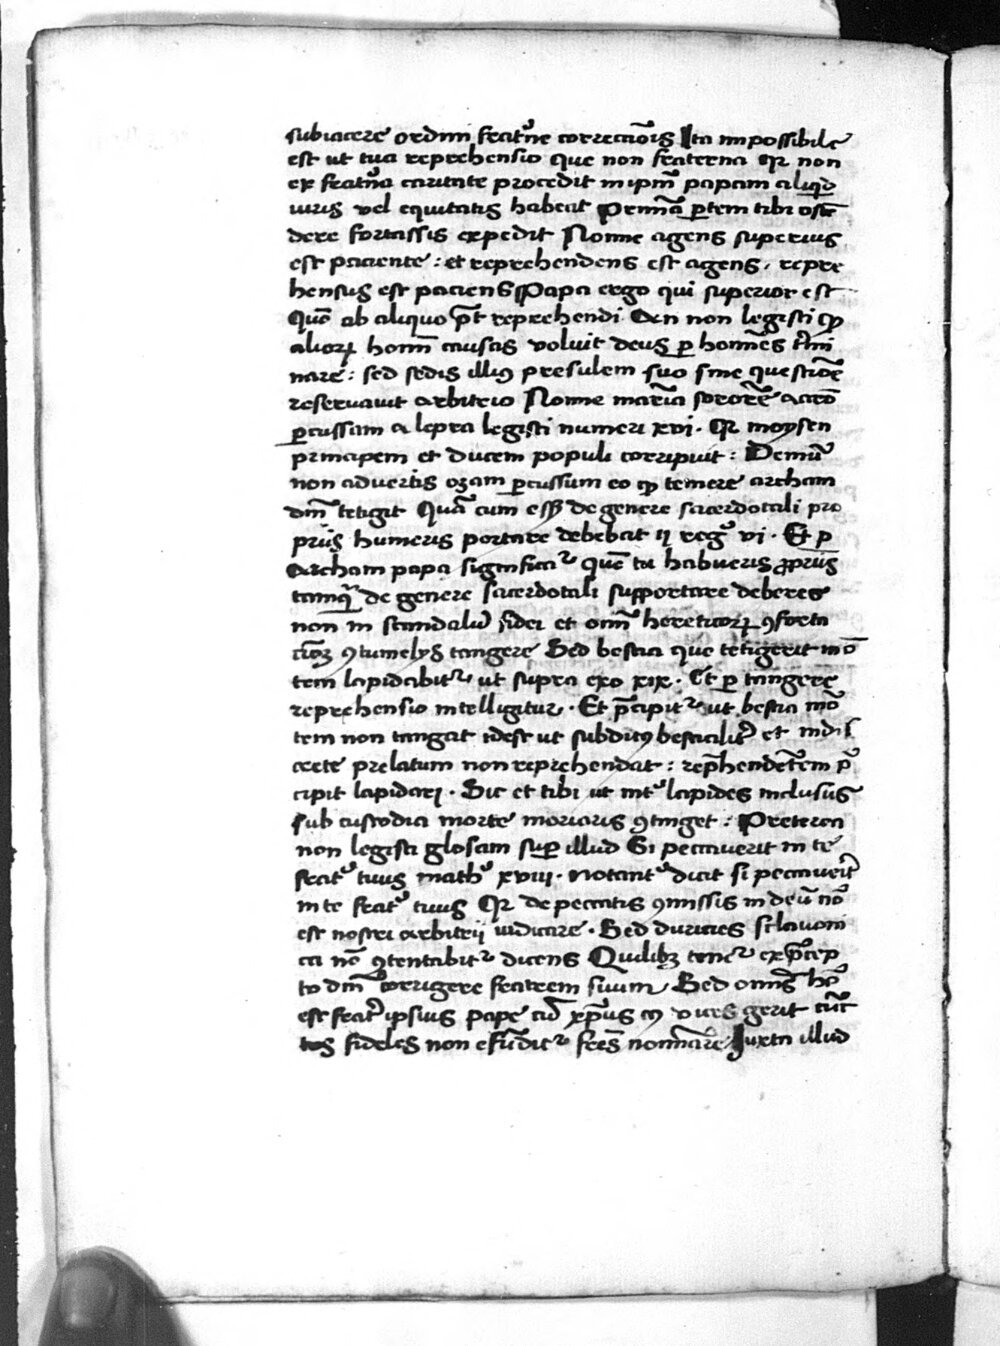 subiacere ordini frat'ne correctiōis Ita impossibile
est ut tua reprehensio que non fraterna Qr non
ex frat'na caritate procedit in ipm̄ papam aliqid
iuris vel equitatis habeat Primā ꝑtem tibi osten
dere fortassis expedit Nonne agens superius
est paciente : et reprehendens est agens , repre
hensus est paciens Papa ergo qui superior est
Quō ab aliquo pōt reprehendi An non legisti qꝫ
alioꝝ homīn causas voluit deus ꝑ homīes t'mi
nare : sed sedis illiꝰ presulem suo sine questiōe
reservavit arbitrio Nonne mariā sororē aarō
ꝑcussam a lepra legisti numeri xvi · Qr moysen
principem et ducem populi corripuit : Demū
non advertis ozam ꝑcussum eo qꝫ temere archam
dnī tetigit Quā cum essꝫ de genere sacerdotali pro
priis humeris portare debebat ii reg' vi · Et ꝑ
Archam papa significat' quē tu habueris ꝓpriis
tamqꝫ de genere sacerdotali supportare deberes
non in scandalū fidei et omī hereticoꝝ ꝯforta
cioꝫ ꝯtumelijs tangere Sed bestia que tetigerit mō
tem lapidabit' ut supra exo xix · Et ꝑ tangere
reprehensio intelligitur · Et p̄cipit' ut bestia mō
tem non tangat idest ut subditꝰ bestialit' et indis
crete prelatum non reprehendat : rep̄hendētem p̄
cipit lapidari · Sic et tibi ut int' lapides inclusus
sub custodia morte moriaris ꝯtinget : Preterea
non legisti glosam suꝑ illud Si peccaverit in te
frat' tuus math' xviii · notant' dicit si peccaverit
in te frat' tuus Qr de peccatis ꝯmissis in deū nō
est nostri arbitrij iudicare · Sed duricies sclavoni
ca nō ꝯtentabit' dicens Quilibꝫ tenet' ex p̄cep
to dnī corrigere fratrem suum Sed omīs hō
est frat' ipsius pape cū xp̄us cꝰ vices gerit cūc
tos fideles non efūdit' fr̄es nomīare Iuxta illud